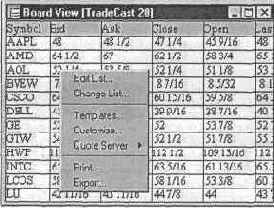 Board View [TradeCast 20]
Symbol Bid Ask Close Open Las
AAPL 48 48 1/2 47 1/4 45 9/16 48
AMD 64 1/2 67 62 1/2 58 3/4 65
AOL 52 1/4 51 1/8 53
BVEW 8 7/16 8 5/32 8 1
CSCO 60 59 5/8 64
DELL 28 7/16 40
GE 52 53 7/8 52
GTW 52 1/2 51 7/8 55
HWP 112 1/2 109 13/16 112
INTC 63 5/16 61 13/16 63
LCOS 58 1/16 53 3/8 60
LU 44 7/8 44 43
Edit List...
Change List...
Templates...
Customize...
Quote Server
Print...
Export...